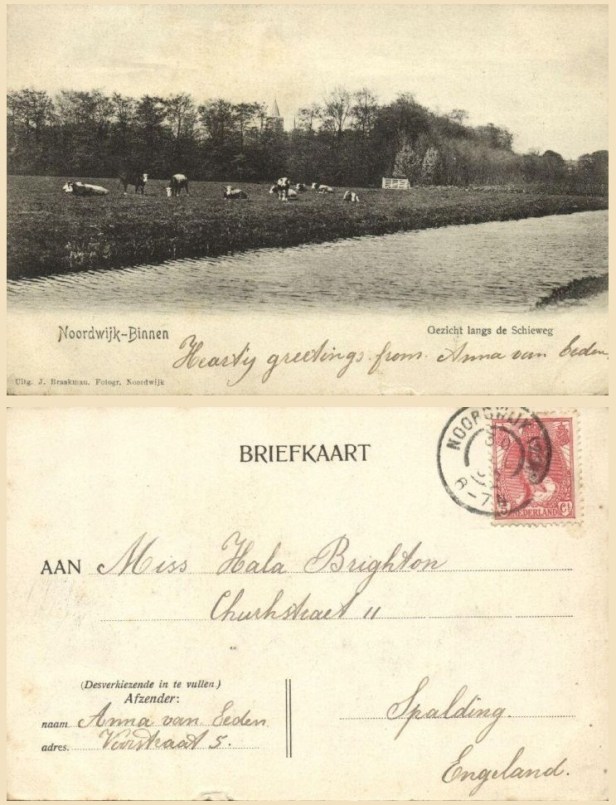 Noordwijk-Binnen
Gezicht langs de Schieweg
Hearty greetings from Anna van Eeden.
Uitg. J. Braakman. Fotogr. Noordwijk
BRIEFKAART
NOORDWIJK
6-7N
NEDERLAND
AAN Miss Hala Brighton
Churhstraat 11
(Desverkiezende in te vullen.)
Afzender:
naam Anna van Eeden
adres. Voorstraat 5.
Spalding.
Engeland.